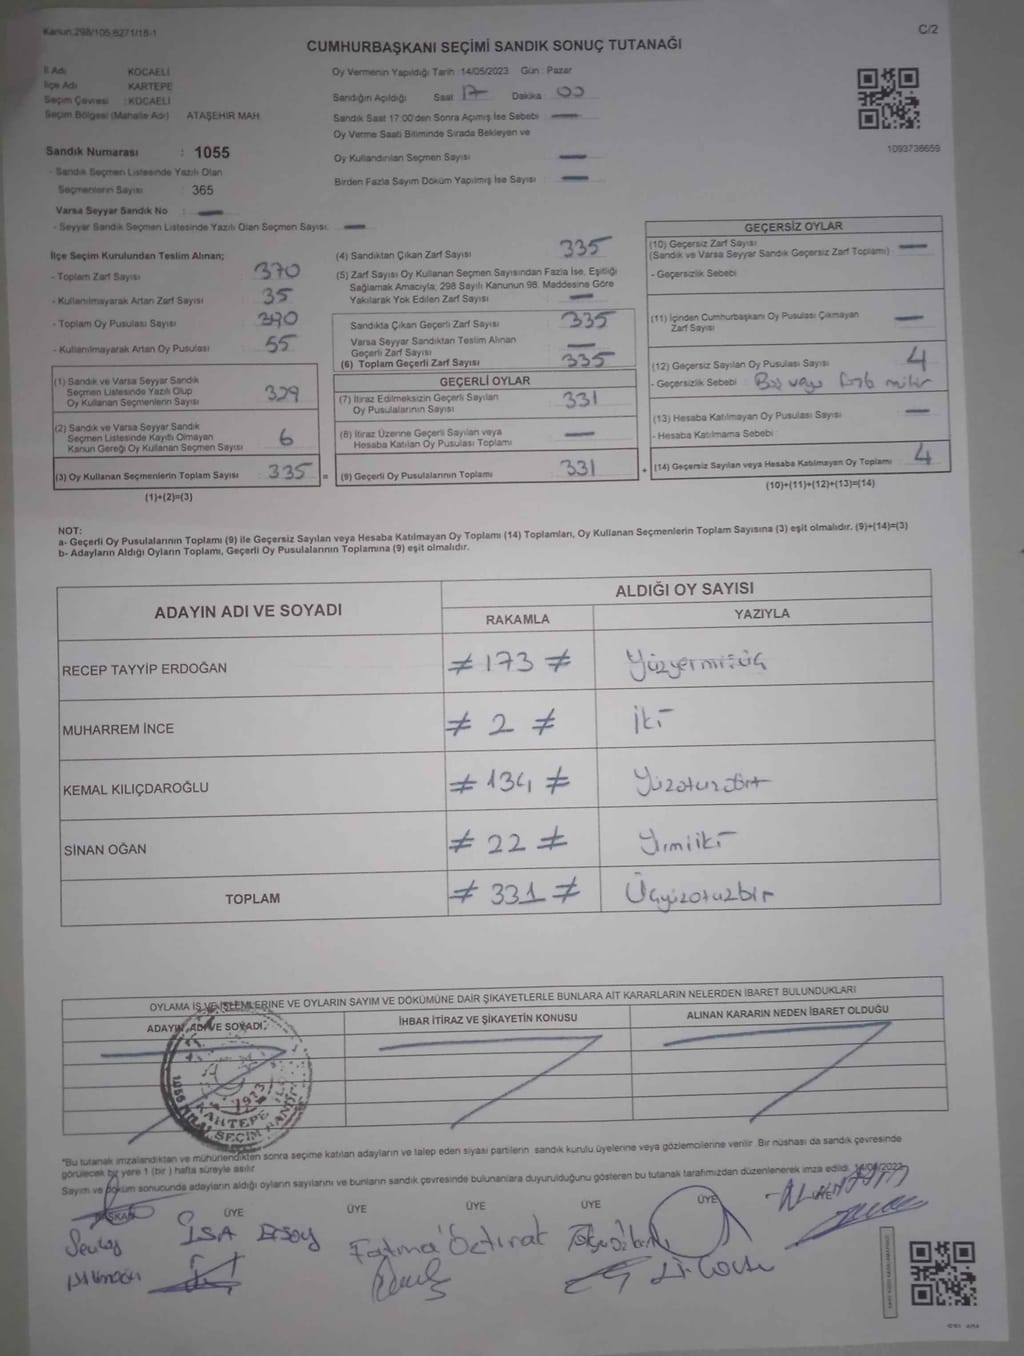 Kanun:298/105;6271/18-1
C/2
CUMHURBAŞKANI SEÇİMİ SANDIK SONUÇ TUTANAĞI
İl Adı KOCAELİ
İlçe Adı KARTEPE
Seçim Çevresi : KOCAELİ
Seçim Bölgesi (Mahalle Adı) ATAŞEHİR MAH.
Sandık Numarası : 1055
- Sandık Seçmen Listesinde Yazılı Olan
Seçmenlerin Sayısı 365
Varsa Seyyar Sandık No : —
- Seyyar Sandık Seçmen Listesinde Yazılı Olan Seçmen Sayısı: —
Oy Vermenin Yapıldığı Tarih :14/05/2023 Gün : Pazar
Sandığın Açıldığı Saat 17 Dakika : 00
Sandık Saat 17:00'den Sonra Açımış İse Sebebi : —
Oy Verme Saati Bitiminde Sırada Bekleyen ve
Oy Kullandırılan Seçmen Sayısı —
Birden Fazla Sayım Döküm Yapılmış İse Sayısı : —
1093738659
İlçe Seçim Kurulundan Teslim Alınan;
- Toplam Zarf Sayısı : 370
- Kullanılmayarak Artan Zarf Sayısı : 35
- Toplam Oy Pusulası Sayısı : 390
- Kullanılmayarak Artan Oy Pusulası : 55
(1) Sandık ve Varsa Seyyar Sandık
Seçmen Listesinde Yazılı Olup
Oy Kullanan Seçmenlerin Sayısı 329
(2) Sandık ve Varsa Seyyar Sandık
Seçmen Listesinde Kayıtlı Olmayan
Kanun Gereği Oy Kullanan Seçmen Sayısı 6
(3) Oy Kullanan Seçmenlerin Toplam Sayısı 335 =
(1)+(2)=(3)
(4) Sandıktan Çıkan Zarf Sayısı 335
(5) Zarf Sayısı Oy Kullanan Seçmen Sayısından Fazla İse, Eşitliği
Sağlamak Amacıyla, 298 Sayılı Kanunun 98. Maddesine Göre
Yakılarak Yok Edilen Zarf Sayısı —
Sandıkta Çıkan Geçerli Zarf Sayısı : 335
Varsa Seyyar Sandıktan Teslim Alınan
Geçerli Zarf Sayısı —
(6) Toplam Geçerli Zarf Sayısı 335
GEÇERLİ OYLAR
(7) İtiraz Edilmeksizin Geçerli Sayılan
Oy Pusulalarının Sayısı 331
(8) İtiraz Üzerine Geçerli Sayılan veya
Hesaba Katılan Oy Pusulası Toplamı —
(9) Geçerli Oy Pusulalarının Toplamı 331 +
GEÇERSİZ OYLAR
(10) Geçersiz Zarf Sayısı
(Sandık ve Varsa Seyyar Sandık Geçersiz Zarf Toplamı) : —
- Geçersizlik Sebebi
(11) İçinden Cumhurbaşkanı Oy Pusulası Çıkmayan
Zarf Sayısı —
(12) Geçersiz Sayılan Oy Pusulası Sayısı 4
- Geçersizlik Sebebi : Boş veya mühür
(13) Hesaba Katılmayan Oy Pusulası Sayısı —
- Hesaba Katılmama Sebebi
(14) Geçersiz Sayılan veya Hesaba Katılmayan Oy Toplamı 4
(10)+(11)+(12)+(13)=(14)
NOT:
a- Geçerli Oy Pusulalarının Toplamı (9) ile Geçersiz Sayılan veya Hesaba Katılmayan Oy Toplamı (14) Toplamları, Oy Kullanan Seçmenlerin Toplam Sayısına (3) eşit olmalıdır. (9)+(14)=(3)
b- Adayların Aldığı Oyların Toplamı, Geçerli Oy Pusulalarının Toplamına (9) eşit olmalıdır.
ADAYIN ADI VE SOYADI
ALDIĞI OY SAYISI
RAKAMLA YAZIYLA
RECEP TAYYİP ERDOĞAN ≠ 173 ≠ Yüzyetmişüç
MUHARREM İNCE ≠ 2 ≠ İki
KEMAL KILIÇDAROĞLU ≠ 134 ≠ Yüzotuzdört
SİNAN OĞAN ≠ 22 ≠ Yirmiiki
TOPLAM ≠ 331 ≠ Üçyüzotuzbir
OYLAMA İŞ VE İŞLEMLERİNE VE OYLARIN SAYIM VE DÖKÜMÜNE DAİR ŞİKAYETLERLE BUNLARA AİT KARARLARIN NELERDEN İBARET BULUNDUKLARI
ADAYIN ADI VE SOYADI İHBAR İTİRAZ VE ŞİKAYETİN KONUSU ALINAN KARARIN NEDEN İBARET OLDUĞU
KARTEPE
SEÇİM
"Bu tutanak imzalandıktan ve mühürlendikten sonra seçime katılan adayların ve talep eden siyasi partilerin sandık kurulu üyelerine veya gözlemcilerine verilir. Bir nüshası da sandık çevresinde
görülecek bir yere 1 (bir) hafta süreyle asılır.
Sayım ve döküm sonucunda adayların aldığı oyların sayılarını ve bunların sandık çevresinde bulunanlara duyurulduğunu gösteren bu tutanak tarafımızdan düzenlenerek imza edildi. 14/05/2023
BAŞKAN ÜYE ÜYE ÜYE ÜYE ÜYE
İSA ERSOY
Fatma